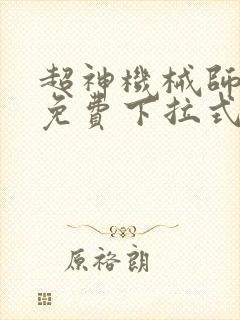 超神機械師
免費下拉式
原裕朗